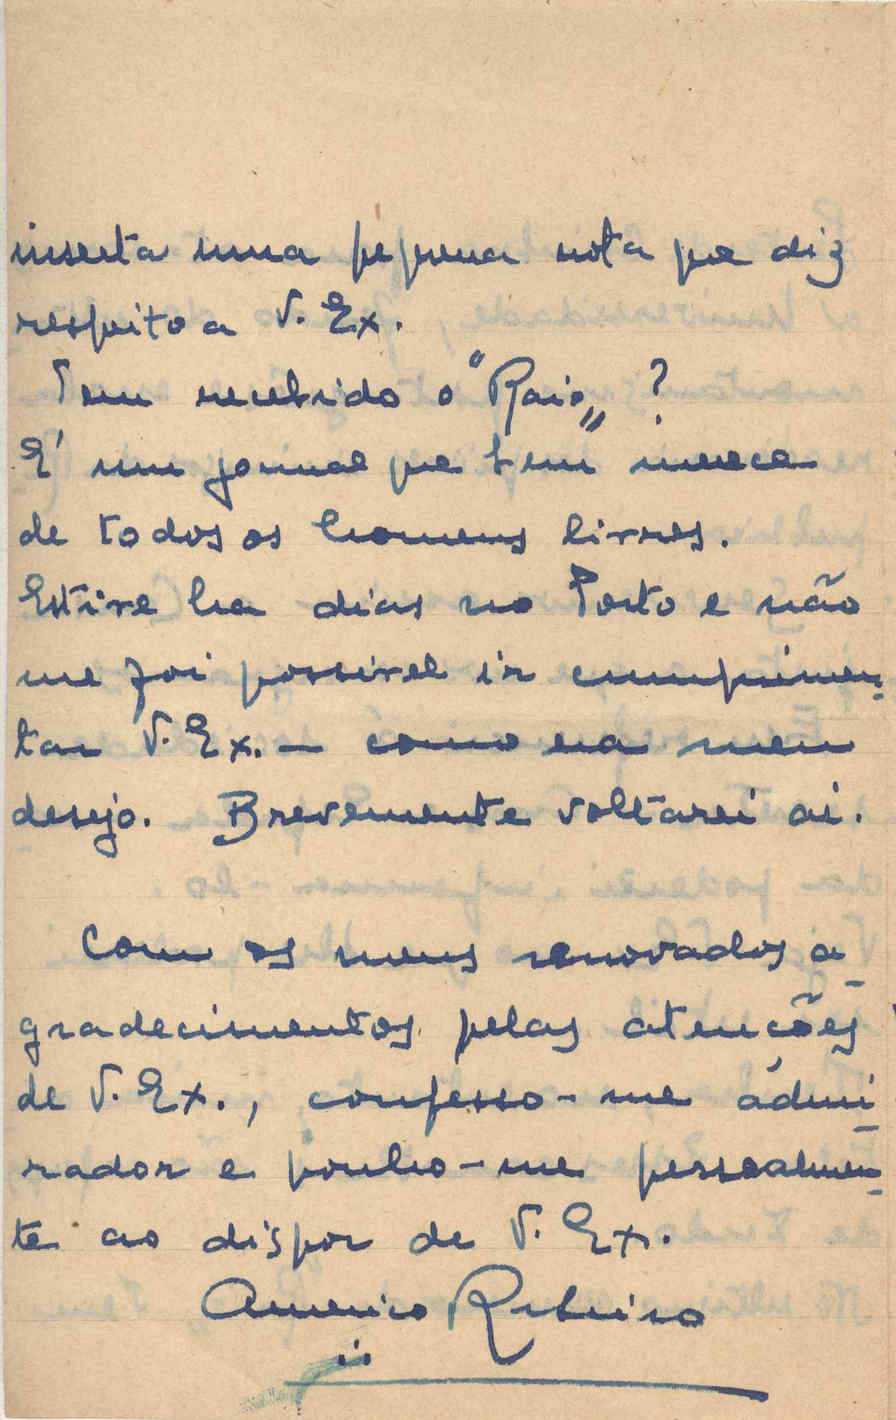 inserta uma pequena nota que diz
respeito a V. Ex.
Tem recebido o "Raio„ ?
É um jornal que bem merece
de todos os homens livres.
Estive ha dias no Porto e não
me foi possivel ir cumprimen-
tar V. Ex. — como era meu
desejo. Brevemente voltarei ai.
Com os meus renovados a-
gradecimentos pelas atenções
de V. Ex., confesso-me admi-
rador e ponho-me pessoalmen-
te ao dispor de V. Ex.
Americo Ribeiro